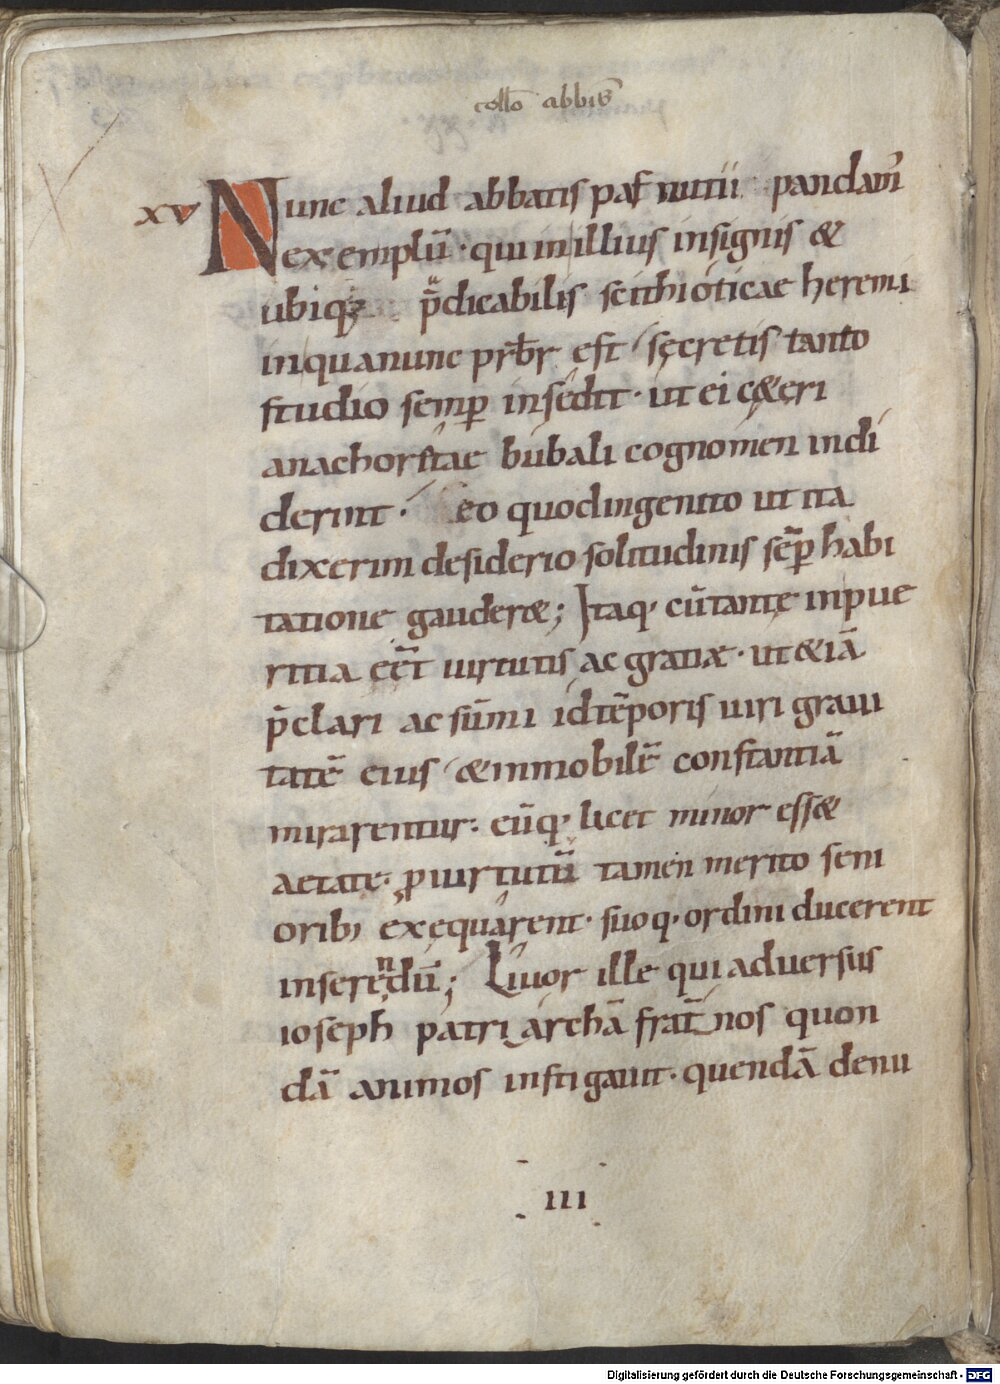 collō abbis
xv Nunc aliud abbatis paf nutii pandam̄
exemplū · qui in illius insignis &
ubiq; p̄dicabilis scithioticae heremi
in qua nunc prb̄r est secretis tanto
studio semp insedit · ut ei c&eri
anachoritae bubali cognomen indi
derint · eo quod ingenito ut ita
dixerim desiderio solitudinis sēp habi
tatione gauder&; Itaq· cū tante in pue
ritia eēt uirtutis ac gratiæ · ut & iā
p̄clari ac sūmi id tēporis uiri graui
tatē eius & inmobilē constantiā
mirarentur · eūq· licet minor ess&
aetate · p uirtutū tamen merito seni
orib; exęquarent · suoq· ordini ducerent
inserendū; Liuor ille qui aduersus
ioseph patriarchā frat̄ nos quon
dā animos instigauit · quendā denu
III
Digitalisierung gefördert durch die Deutsche Forschungsgemeinschaft - DFG